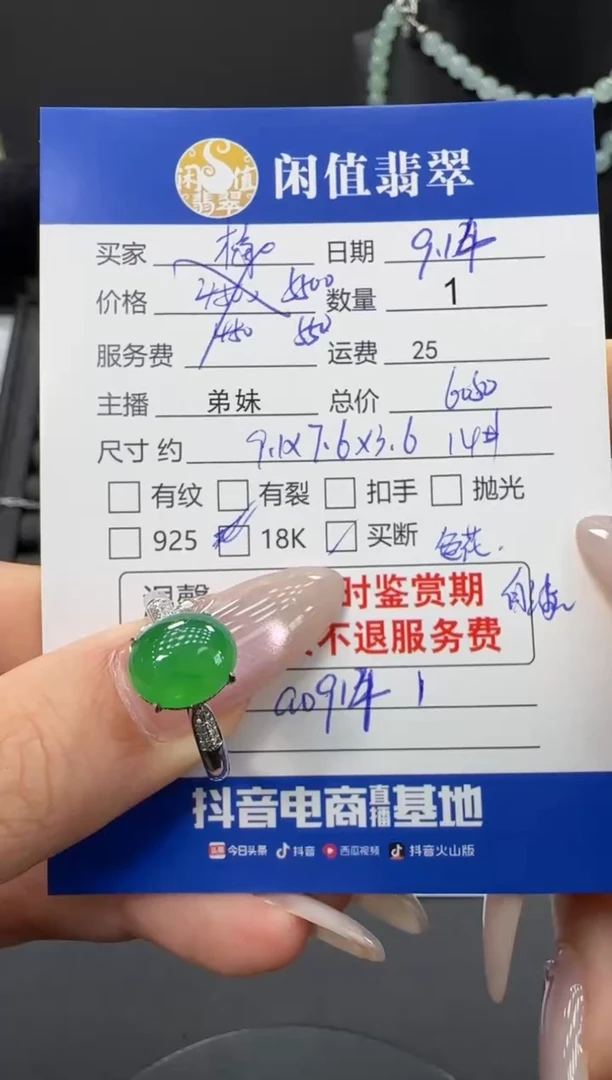 闲值翡翠
闲值翡翠
买家 日期
价格 5500 数量 1
450 550
服务费 运费 25
主播 弟妹 总价 6050
尺寸 约 9.1x7.6x3.6 14#
有纹 有裂 扣手 抛光
925 18K 买断 色花.
温馨 时鉴赏期
不退服务费
抖音电商直播基地
头条 今日头条 抖音 西瓜视频 抖音火山版